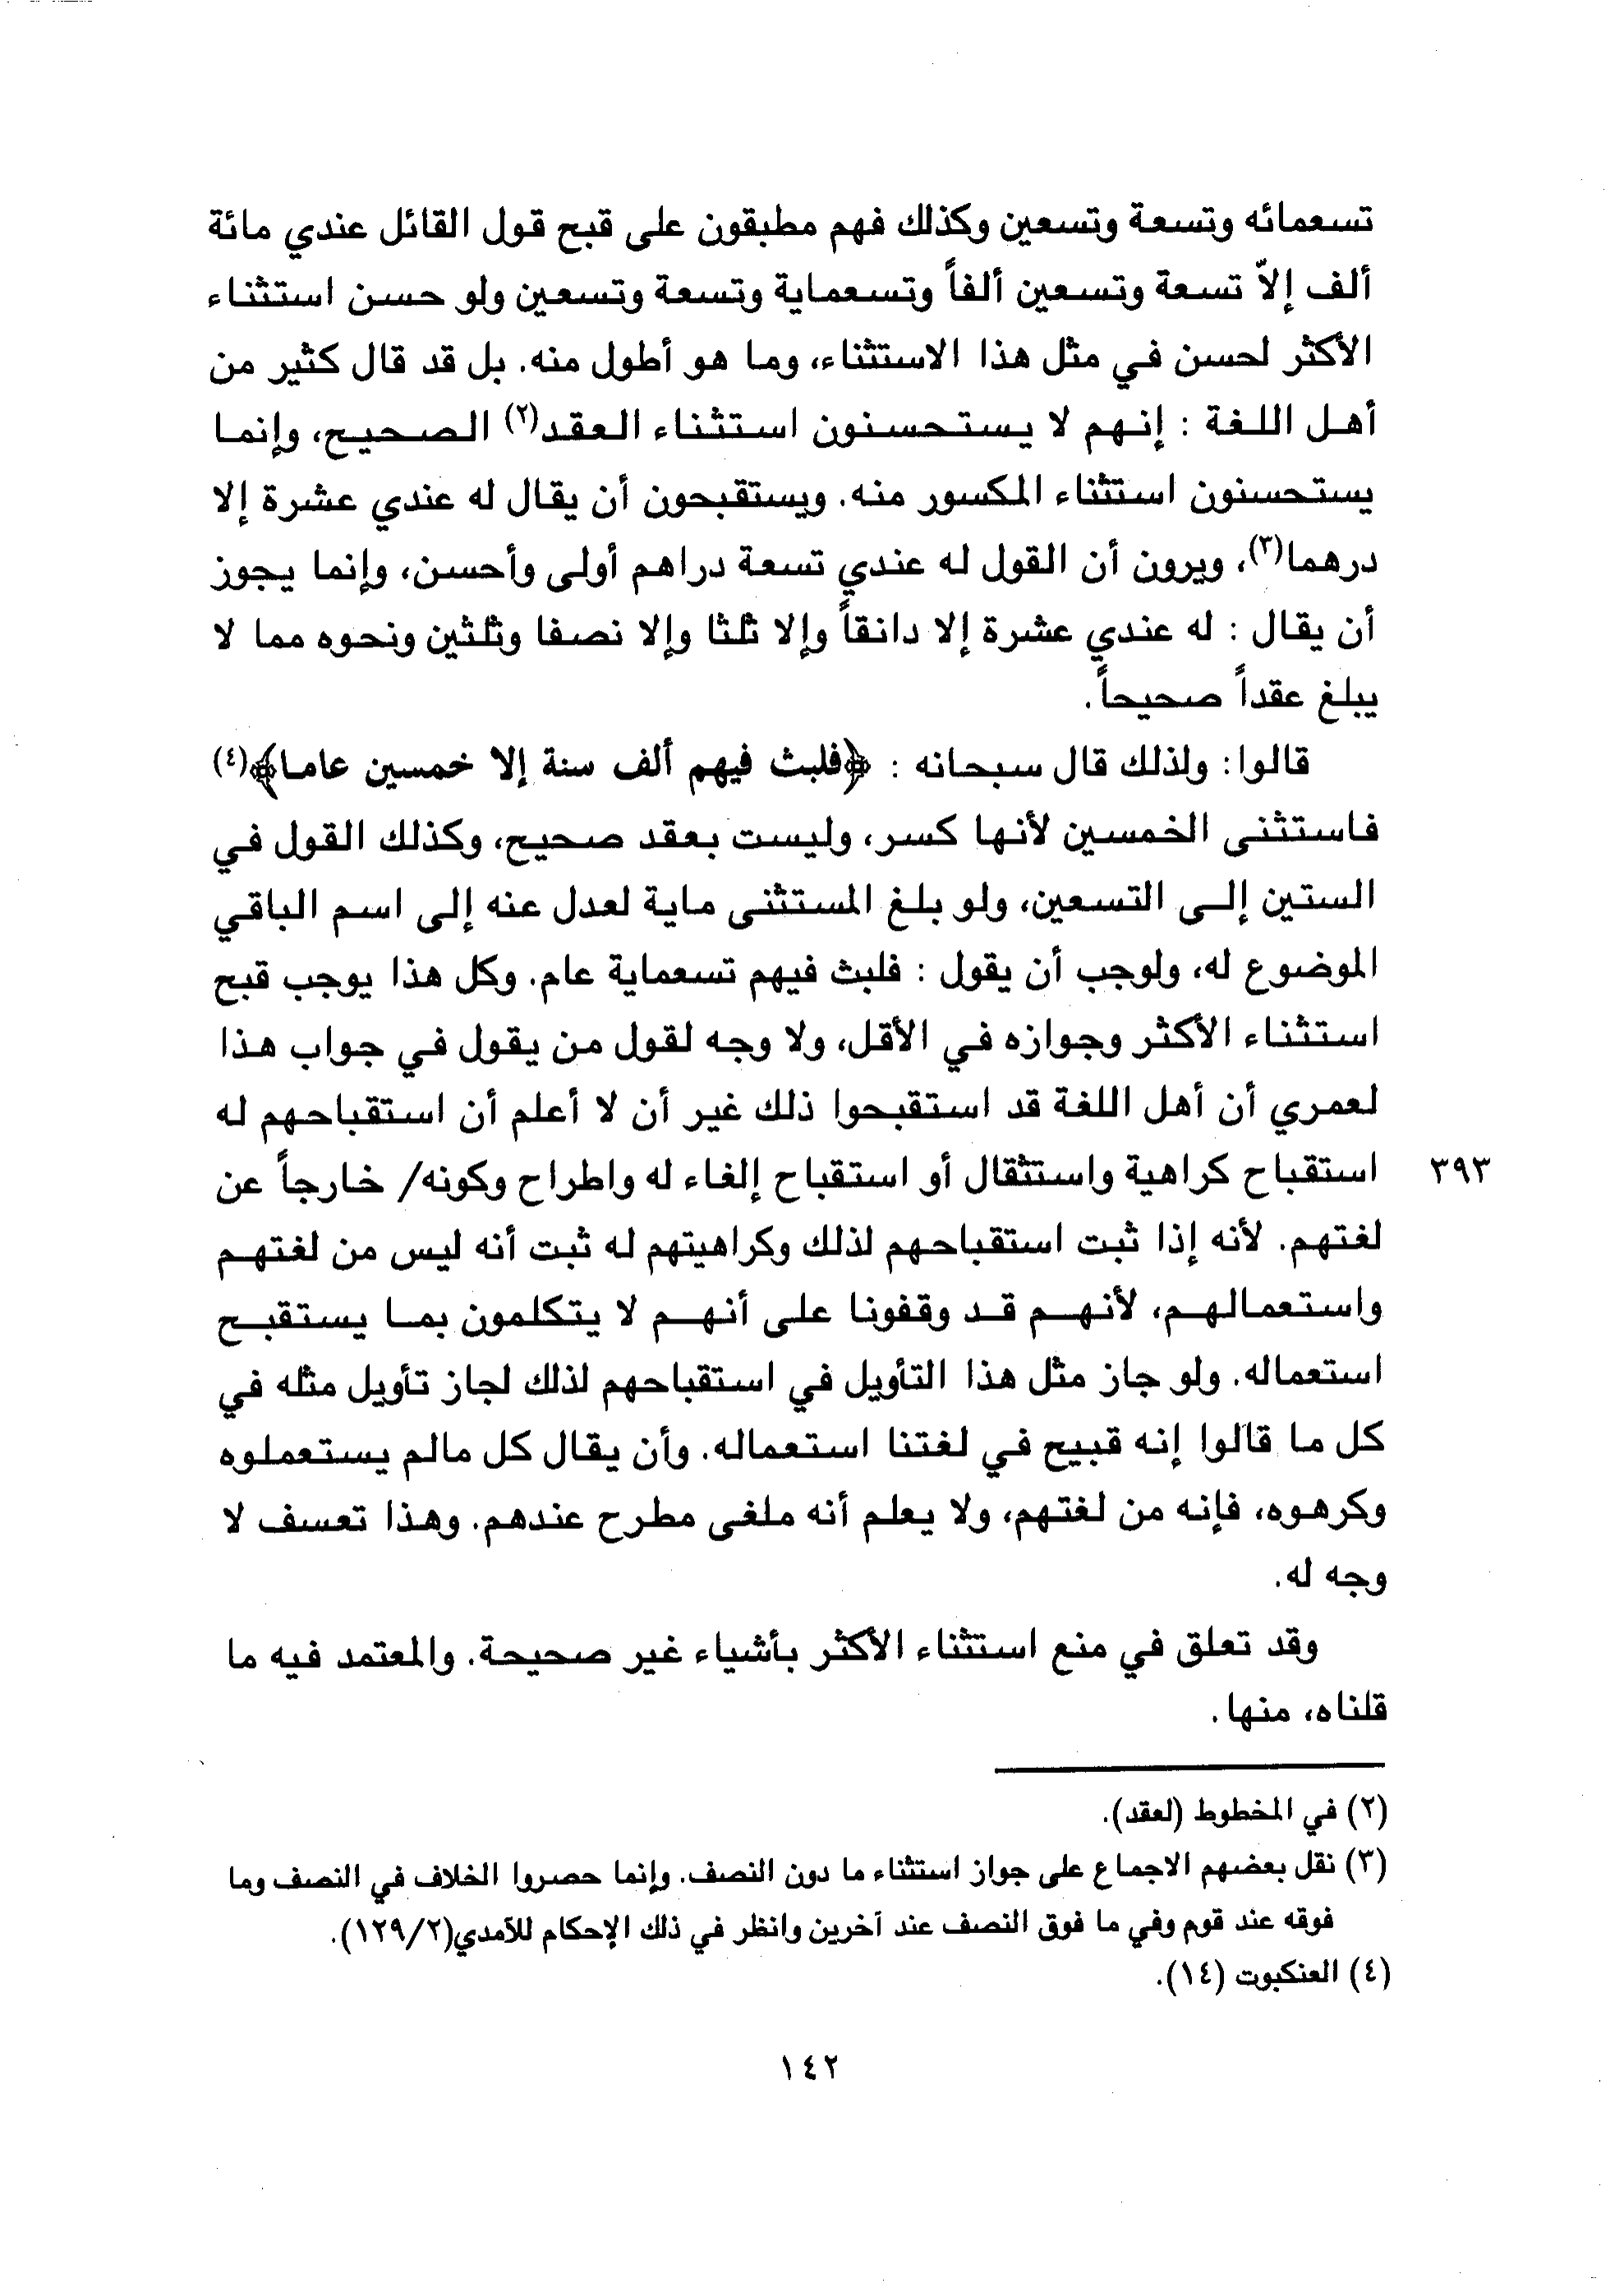 تسعمائه وتسعة وتسعين وكذلك فهم مطبقون على قبح قول القائل عندي مائة
ألف إلاّ تسعة وتسعين ألفاً وتسعماية وتسعة وتسعين ولو حسن استثناء
الأكثر لحسن في مثل هذا الاستثناء، وما هو أطول منه. بل قد قال كثير من
أهل اللغة : إنهم لا يستحسنون استثناء العقد(٢) الصحيح، وإنما
يستحسنون استثناء المكسور منه. ويستقبحون أن يقال له عندي عشرة إلا
درهما(٣)، ويرون أن القول له عندي تسعة دراهم أولى وأحسن، وإنما يجوز
أن يقال : له عندي عشرة إلا دانقاً وإلا ثلثا وإلا نصفا وثلثين ونحوه مما لا
يبلغ عقداً صحيحاً.
قالوا: ولذلك قال سبحانه : ﴿فلبث فيهم ألف سنة إلا خمسين عاما﴾(٤)
فاستثنى الخمسين لأنها كسر، وليست بعقد صحيح، وكذلك القول في
الستين إلى التسعين، ولو بلغ المستثنى ماية لعدل عنه إلى اسم الباقي
الموضوع له، ولوجب أن يقول : فلبث فيهم تسعماية عام. وكل هذا يوجب قبح
استثناء الأكثر وجوازه في الأقل، ولا وجه لقول من يقول في جواب هذا
لعمري أن أهل اللغة قد استقبحوا ذلك غير أن لا أعلم أن استقباحهم له
استقباح كراهية واستثقال أو استقباح إلغاء له واطراح وكونه/ خارجاً عن
٣٩٣
لغتهم. لأنه إذا ثبت استقباحهم لذلك وكراهيتهم له ثبت أنه ليس من لغتهم
واستعمالهم، لأنهم قد وقفونا على أنهم لا يتكلمون بما يستقبح
استعماله. ولو جاز مثل هذا التأويل في استقباحهم لذلك لجاز تأويل مثله في
كل ما قالوا إنه قبيح في لغتنا استعماله. وأن يقال كل مالم يستعملوه
وكرهوه، فإنه من لغتهم، ولا يعلم أنه ملغى مطرح عندهم. وهذا تعسف لا
وجه له.
وقد تعلق في منع استثناء الأكثر بأشياء غير صحيحة. والمعتمد فيه ما
قلناه، منها.
(٢) في المخطوط (لعقد).
(٣) نقل بعضهم الاجماع على جواز استثناء ما دون النصف. وإنما حصروا الخلاف في النصف وما
فوقه عند قوم وفي ما فوق النصف عند آخرين وانظر في ذلك الإحكام للآمدي(١٢٩/٢).
(٤) العنكبوت (١٤).
١٤٢